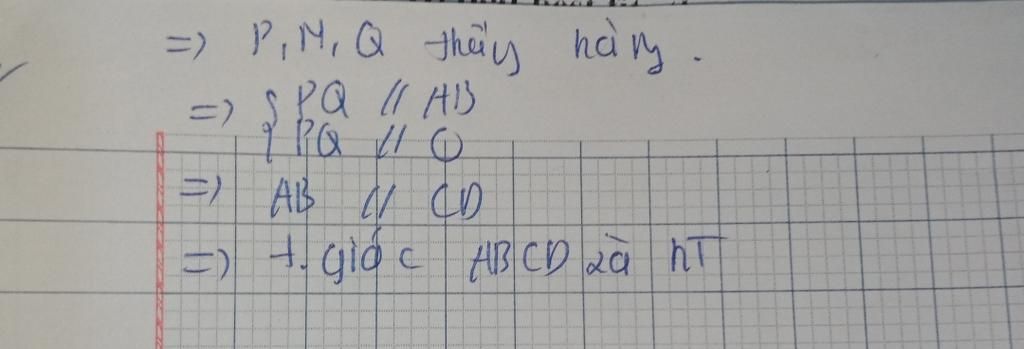 => P, M, Q thẳng hàng.
=> { PQ // AB
{ PQ // CD
=> AB // CD
=> t. giác ABCD là hT